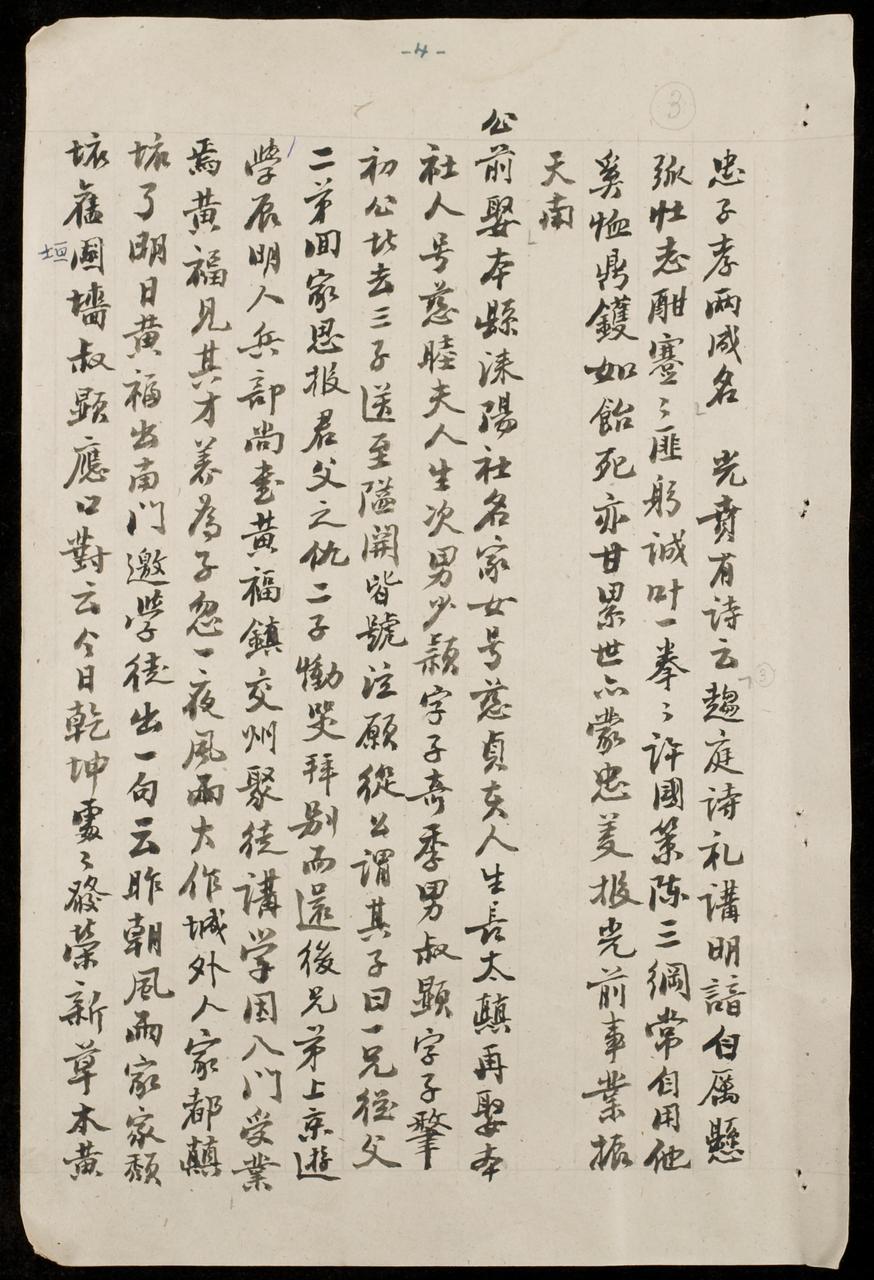 -4-
3
忠子孝兩成名 光賁有詩云趨庭詩礼講明諳自厲懸
弧壮志酣蹇〻匪躬誠叶一拳〻許國策陈三綱常自用他
奚恤鼎鑊如飴死亦甘累世亦蒙忠羙报光前事業振
天南
公前娶本縣涑陽社名家女号慈貞夫人生長太顛再娶本
社人号慈睦夫人生次男少颖字子奇季男叔顯字子肇
初公北去三子送至隘開皆號泣願從公謂其子曰一兄從父
二弟回家思报君父之仇二子慟哭拜别而還後兄弟上京遊
學辰明人兵部尚書黄福鎮交州聚徒講学因入門受業
焉黄福見其才養為子忽一夜風雨大作城外人家都顛
坏了明日黄福出南門邀学徒出一句云昨朝風雨家家頹
坏舊圍墻叔顕應口對云今日乾坤處〻發荣新草木黄
垣
3